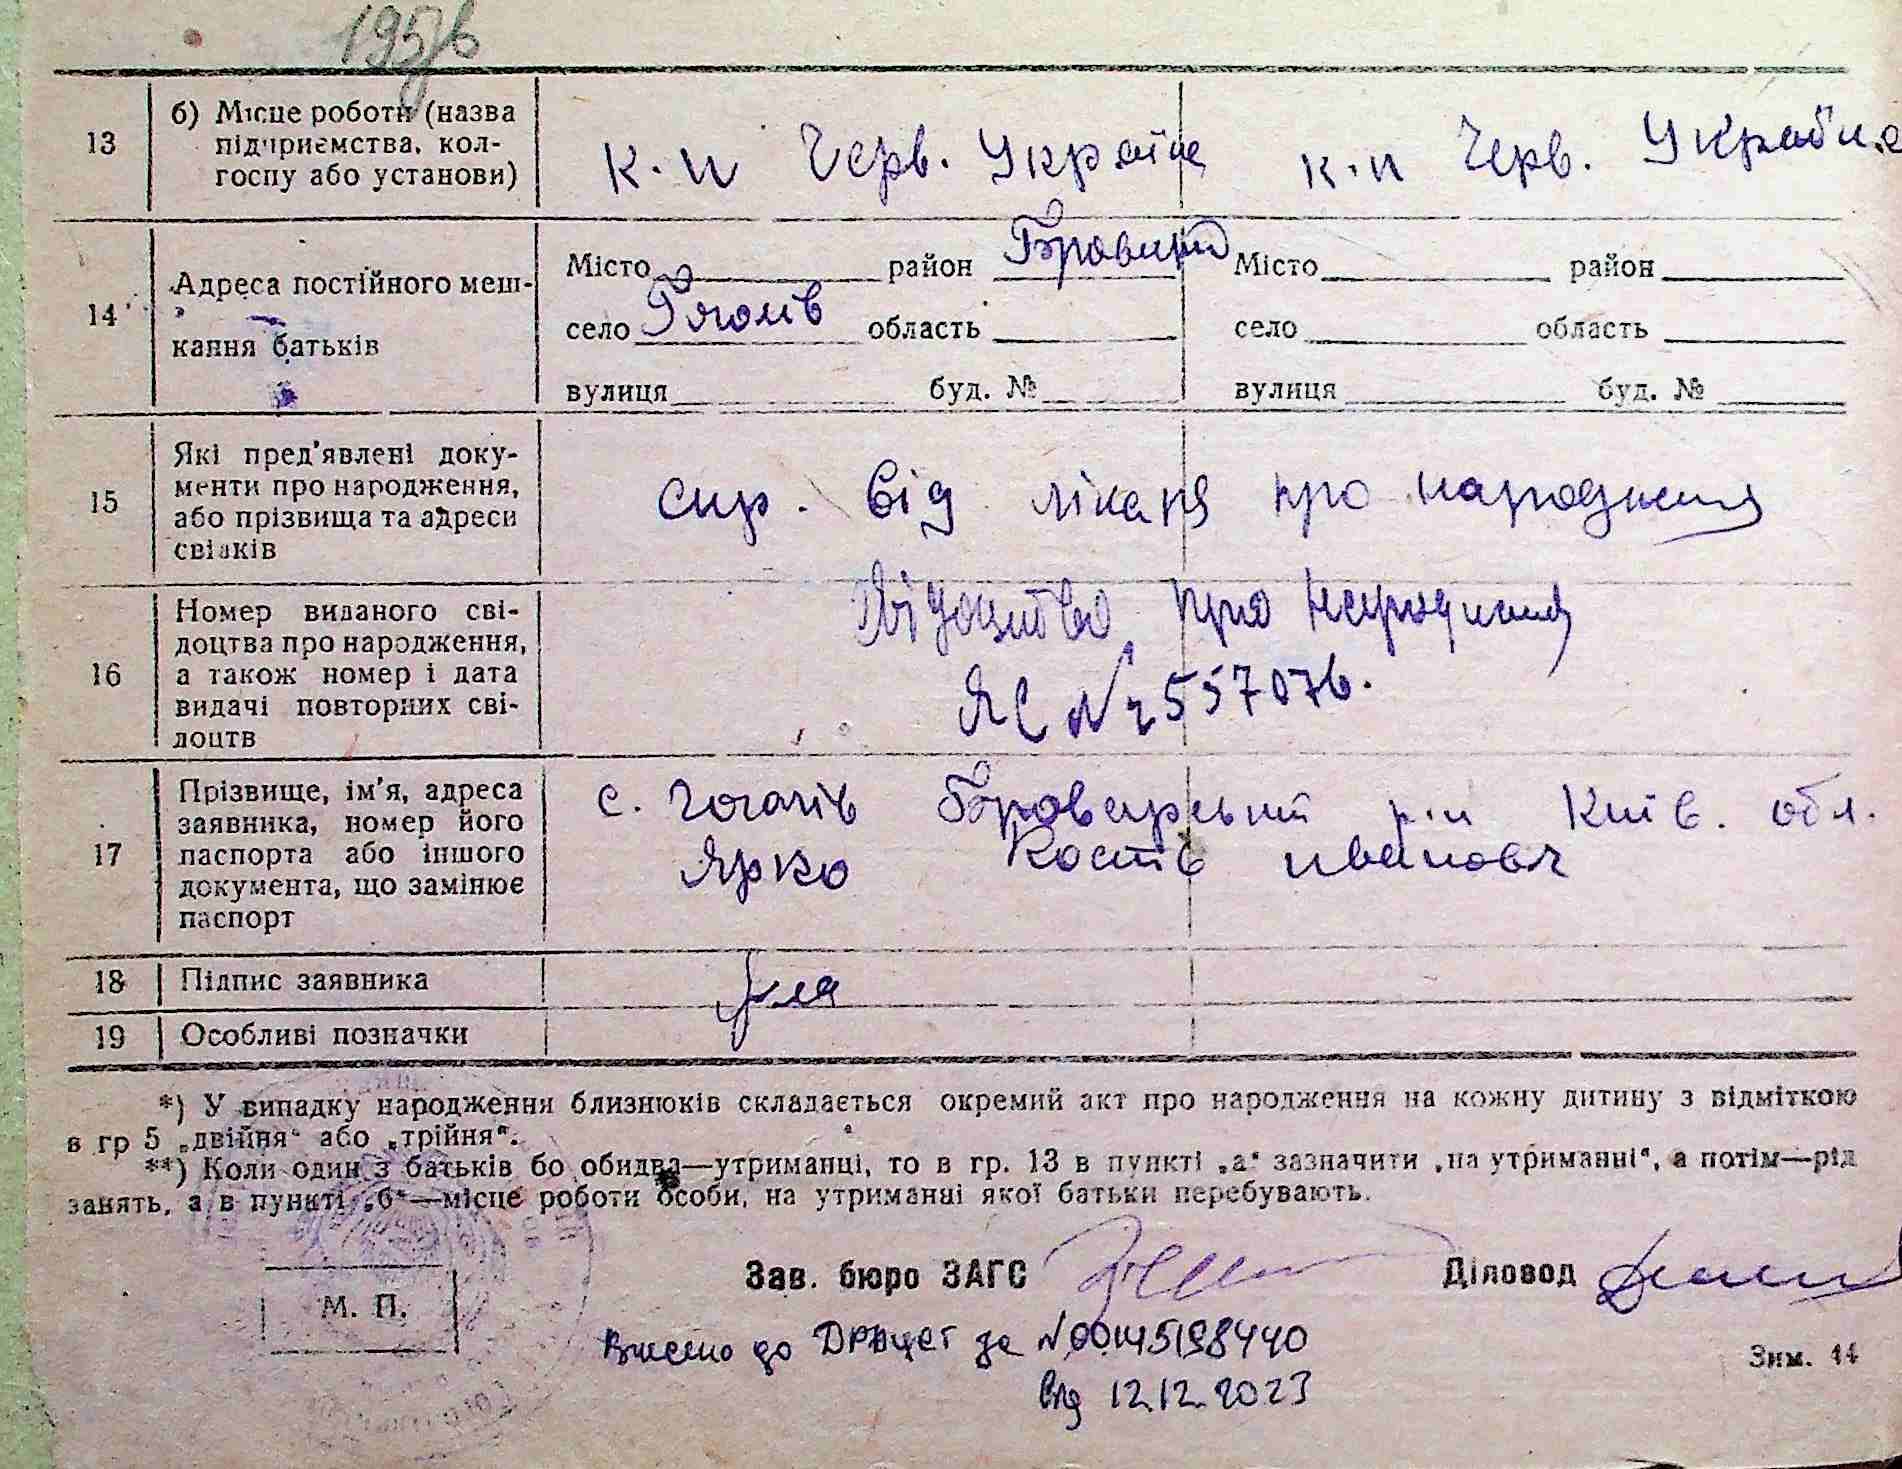 195
13
б) Місце роботи (назва
підприємства, кол-
госпу або установи)
к.п Черв. Україна
к.п Черв. Україна
14
Адреса постійного меш-
кання батьків
Місто район
село область
вулиця буд. №
Місто район
село область
вулиця буд. №
15
Які пред'явлені доку-
менти про народження,
або прізвища та адреси
свідків
від лікаря про народження
16
Номер виданого сві-
доцтва про народження,
а також номер і дата
видачі повторних сві-
доцтв
Свідоцтво про народження
ЯС №
17
Прізвище, ім'я, адреса
заявника, номер його
паспорта або іншого
документа, що замінює
паспорт
с. Гоголів Броварський р.н Київ. обл.
Ярко Костів
18
Підпис заявника
19
Особливі позначки
*) У випадку народження близнюків складається окремий акт про народження на кожну дитину з відміткою
в гр 5 „двійня“ або „трійня“.
**) Коли один з батьків бо обидва—утриманці, то в гр. 13 в пункті „а“ зазначити „на утриманні“, а потім—рід
занять, а в пункті „б“—місце роботи особи, на утриманні якої батьки перебувають.
Зав. бюро ЗАГС
Діловод
М. П.
Внесено до ДРАЦСГ за №00145198440
від 12.12.2023
Зим. 44